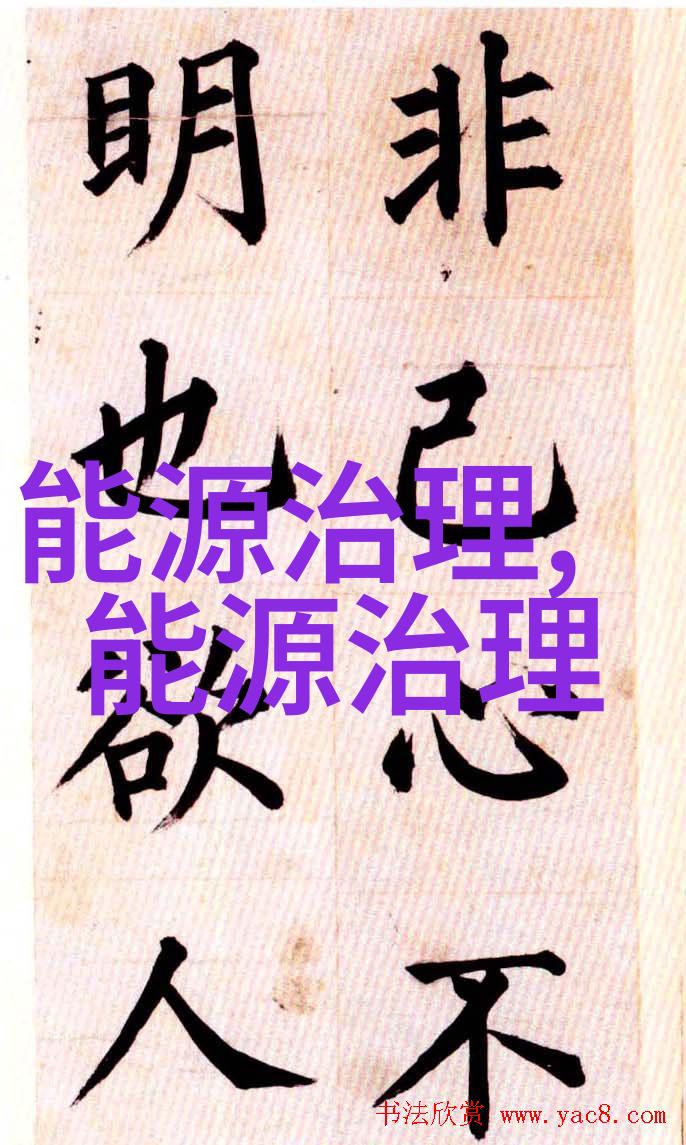 非己心不
明也欲人
能源治理,
能源治理
书法欣赏 www.yac8.com